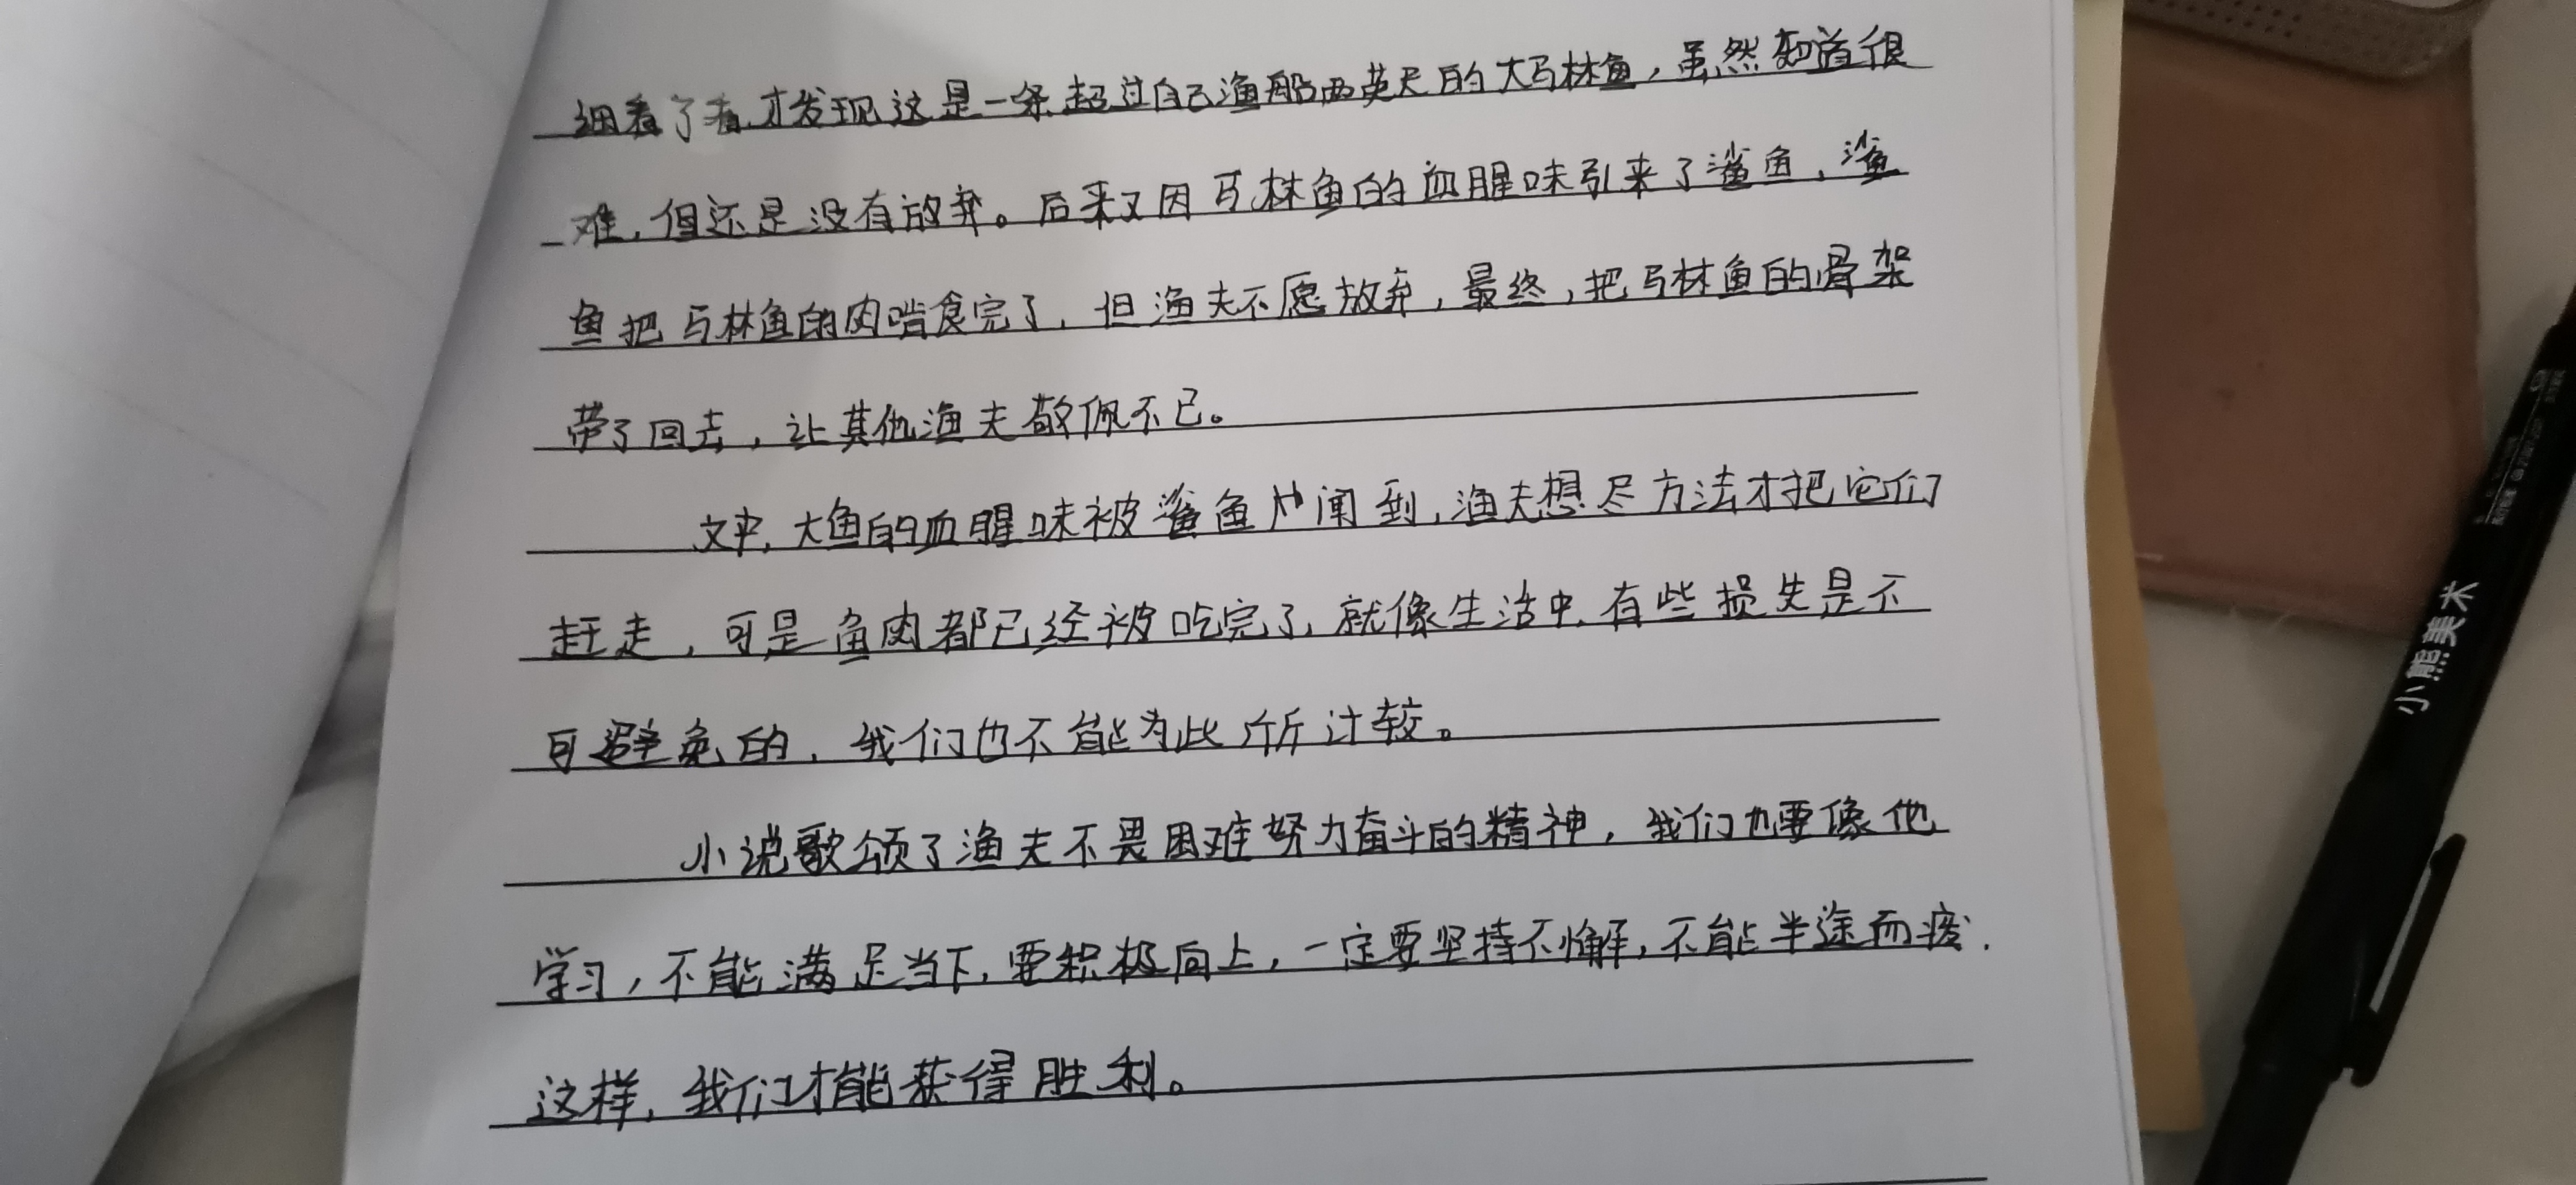 细看了看,才发现这是一条超过自己渔船两英尺的大马林鱼，虽然知道很
难，但还是没有放弃。后来又因马林鱼的血腥味引来了鲨鱼，鲨
鱼把马林鱼的肉啃食完了，但渔夫不愿放弃，最终，把马林鱼的骨架
带了回去，让其他渔夫敬佩不已。
文中，大鱼的血腥味被鲨鱼闻到，渔夫想尽方法才把它们
赶走，可是鱼肉都已经被吃完了，就像生活中，有些损失是不
可避免的，我们也不能为此斤斤计较。
小说歌颂了渔夫不畏困难努力奋斗的精神，我们也要像他
学习，不能满足当下，要积极向上，一定要坚持不懈，不能半途而废.
这样，我们才能获得胜利。
小熊美术